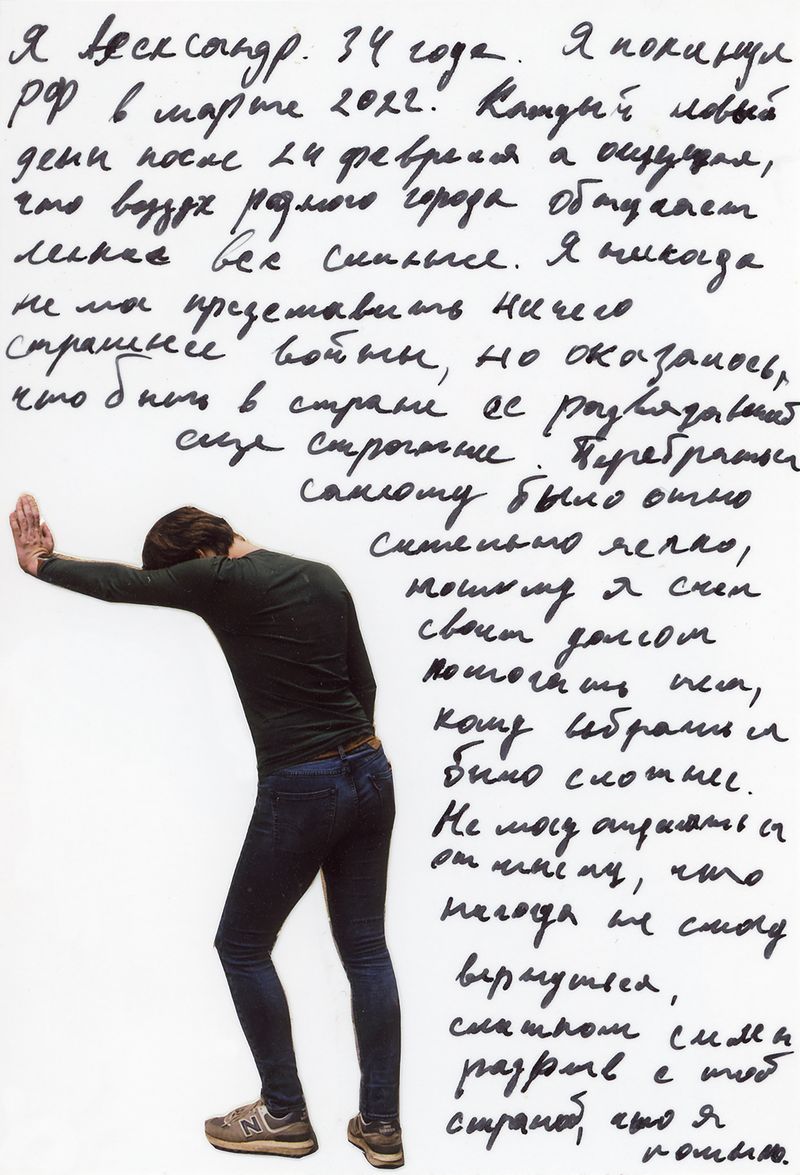 Я Александр. 34 года. Я покинул
РФ в марте 2022. Каждый новый
день после 24 февраля я ощущал,
что воздух родного города обжигает
легкие все сильнее. Я никогда
не мог представить ничего
страшнее войны, но оказалось,
что быть в стране ее развязавшей
еще страшнее. Перебраться
самому было отно
сительно легко,
поэтому я счел
своим долгом
помогать тем,
кому выбраться
было сложнее.
Не могу отделаться
от мысли, что
никогда не смогу
вернуться,
слишком силен
разрыв с той
страной, что я
помню.
N